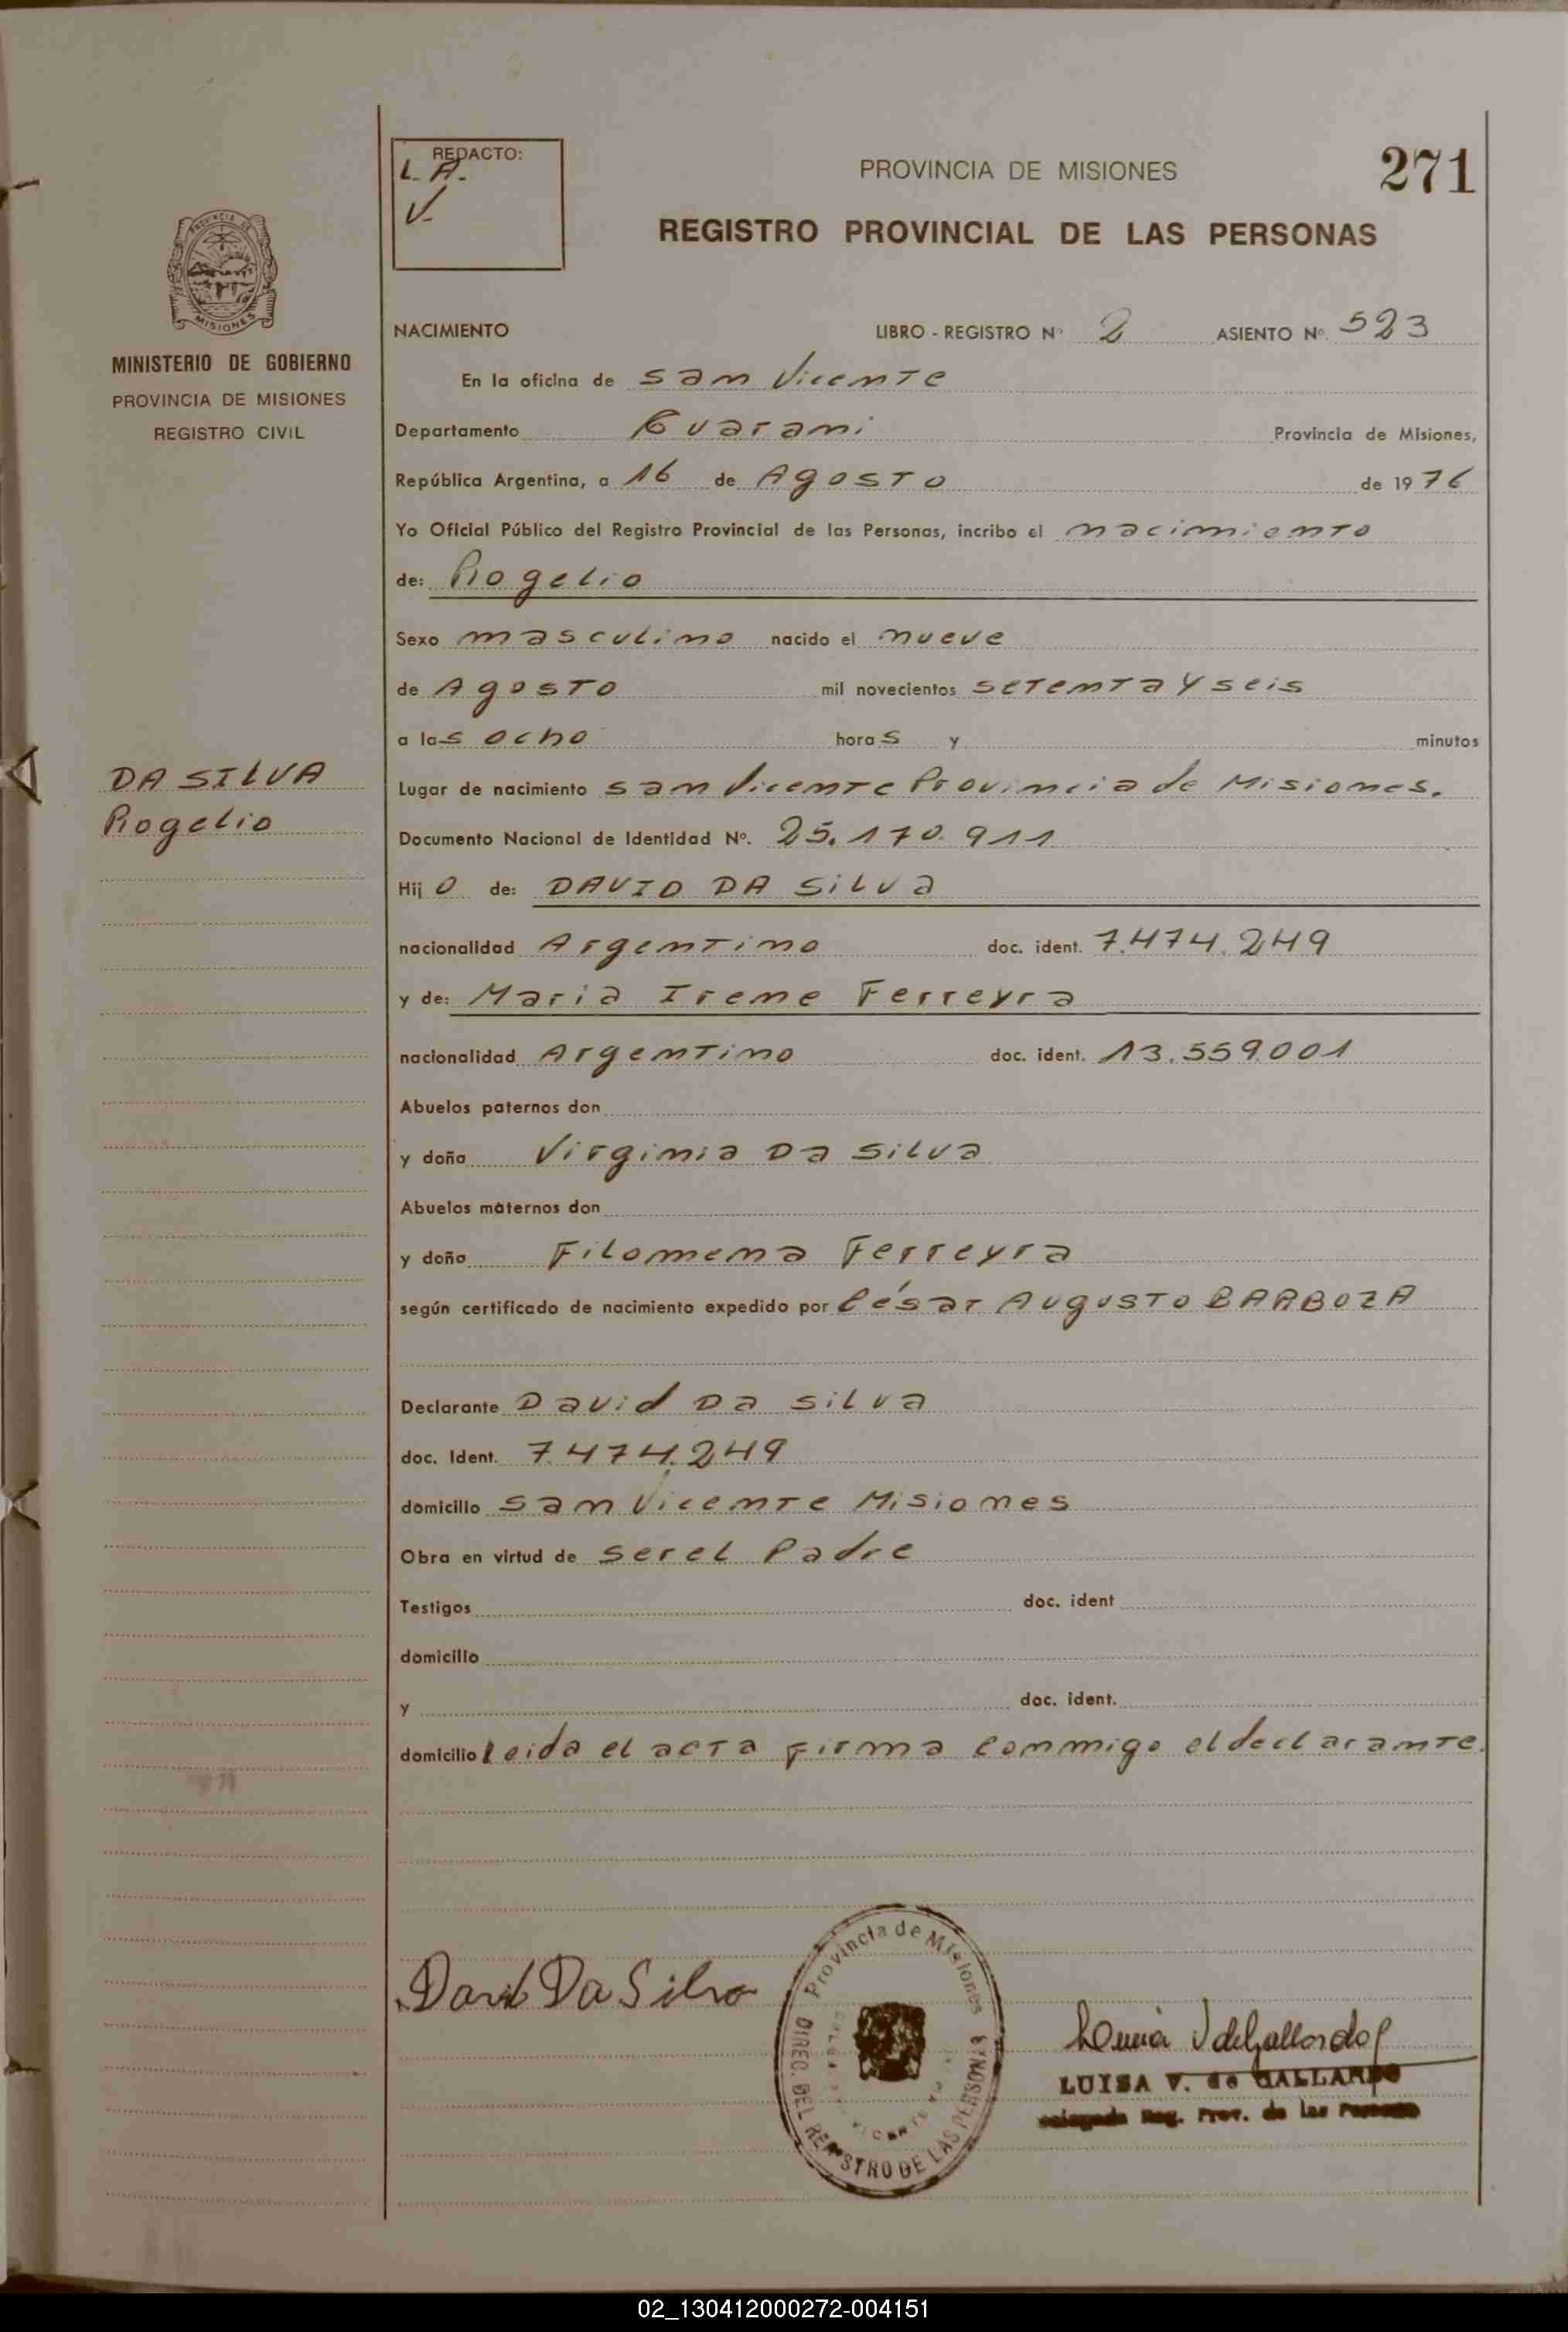 REDACTO:
L. A.
V.
PROVINCIA DE MISIONES
271
REGISTRO PROVINCIAL DE LAS PERSONAS
PROVINCIA DE
MISIONES
MINISTERIO DE GOBIERNO
PROVINCIA DE MISIONES
REGISTRO CIVIL
NACIMIENTO LIBRO - REGISTRO Nº 2 ASIENTO Nº. 523
En la oficina de San Vicente
Departamento Guarani Provincia de Misiones,
República Argentina, a 16 de Agosto de 1976
Yo Oficial Público del Registro Provincial de las Personas, incribo el nacimiento
de: Rogelio
Sexo masculino nacido el nueve
de Agosto mil novecientos setenta y seis
a las ocho horas y minutos
DA SILVA
Rogelio
Lugar de nacimiento San Vicente Provincia de Misiones.
Documento Nacional de Identidad Nº. 25.170.911
Hijo de: DAVID DA SILVa
nacionalidad Argentino doc. ident. 7.474.249
y de: Maria Irene Ferreyra
nacionalidad Argentino doc. ident. 13.559.001
Abuelos paternos don
y doña Virginia Da Silva
Abuelos maternos don
y doña Filomena Ferreyra
según certificado de nacimiento expedido por César Augusto BARBOZA
Declarante David Da Silva
doc. Ident. 7.474.249
domicilio San Vicente Misiones
Obra en virtud de ser el Padre
Testigos doc. ident
domicilio
y doc. ident.
domicilio Leida el acta firma conmigo el declarante.
David Da Silva
Provincia de Misiones
DIREC. DEL REGISTRO DE LAS PERSONAS
LUISA V. de GALLARDO
Delegada Reg. Prov. de las Personas
02_130412000272-004151